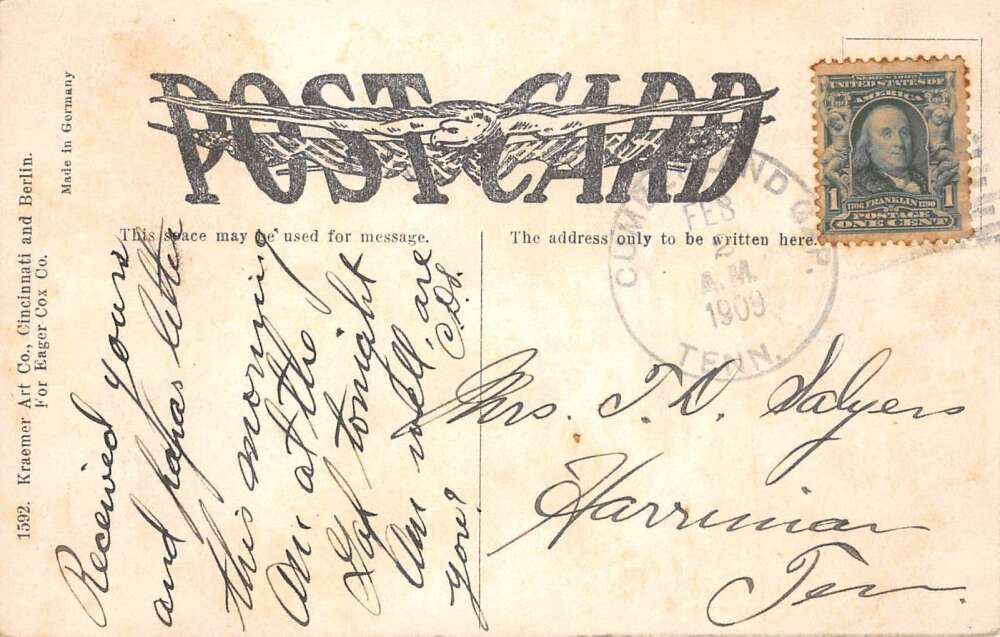 POST CARD
This space may be used for message.
The address only to be written here.
1592. Kraemer Art Co., Cincinnati and Berlin.
For Eager Cox Co.
Made in Germany
SERIES 1902
UNITED STATES OF
AMERICA
1 1
1706 FRANKLIN 1790
POSTAGE
ONE CENT
CUMBERLAND GAP.
FEB
2
A.M.
1909
TENN.
Received yours
and papas letter
this morning.
Am at the
Gap tonight
Am well, are
you?
Mrs. T. D. Salyers
Harriman
Tenn.